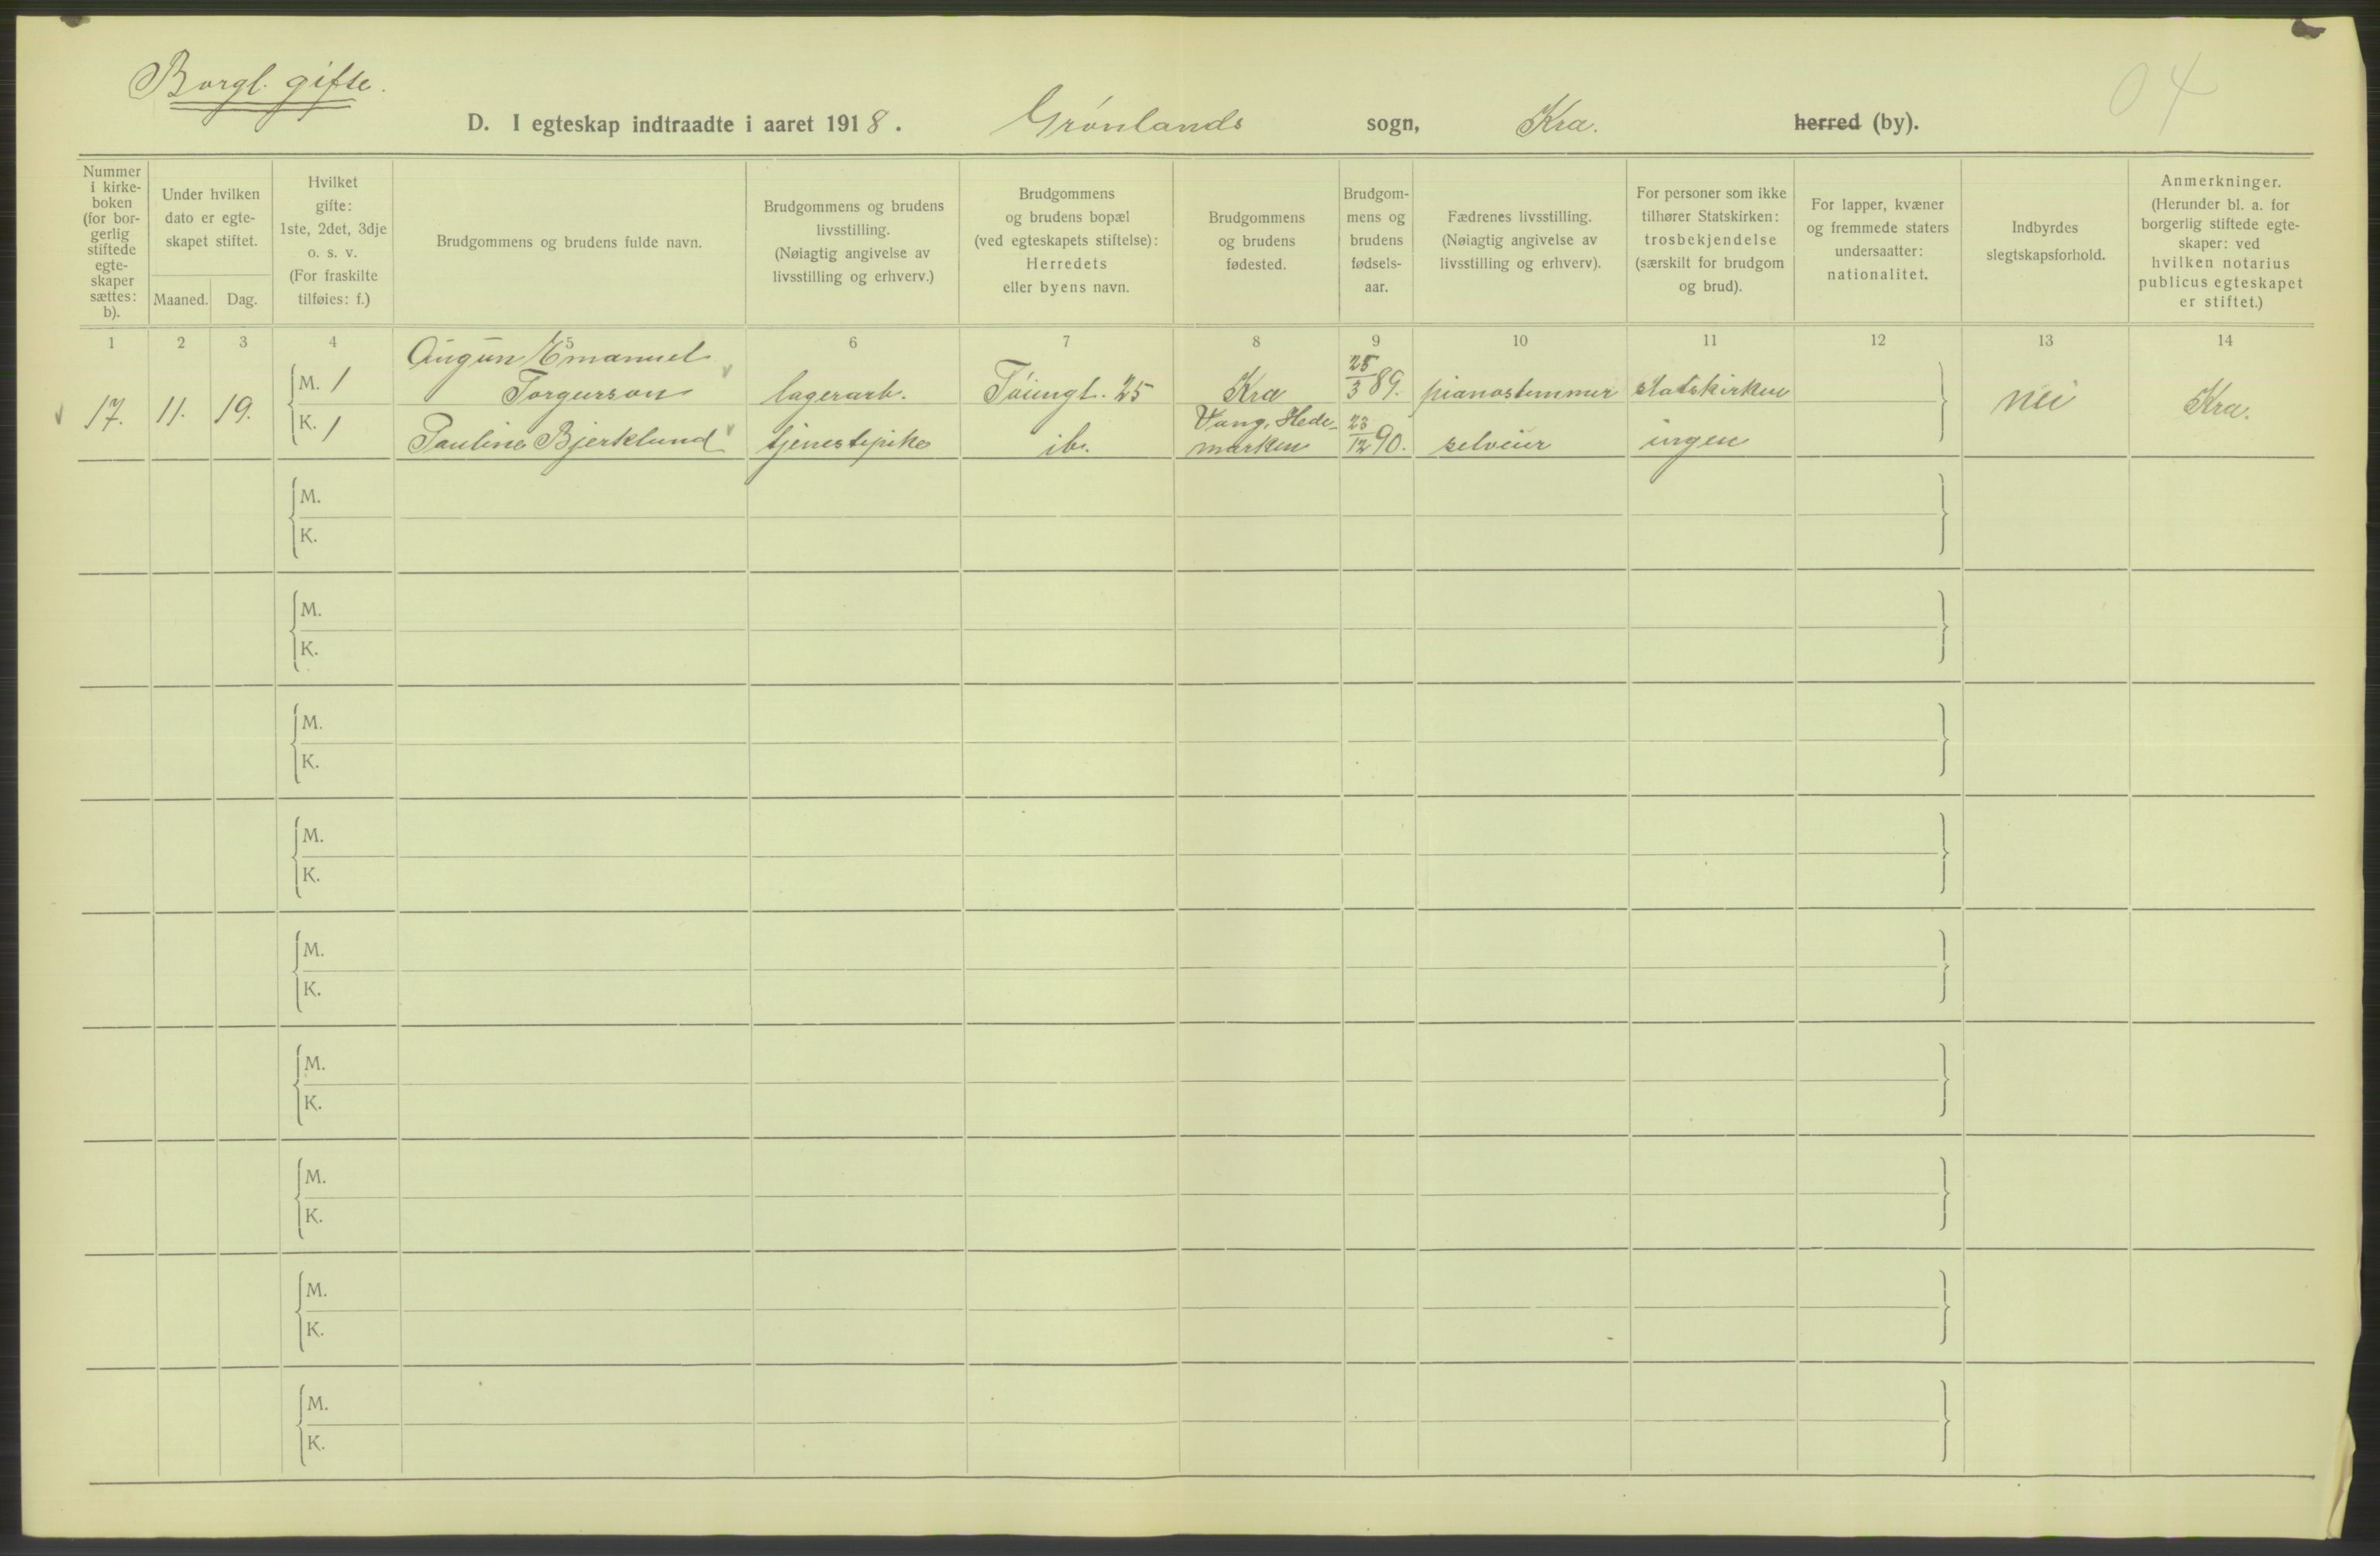 Borgl. gifte.
04
D. I egteskap indtraadte i aaret 1918. Grønlands sogn, Kra. herred (by).
Nummer i kirke- boken (for bor- gerlig stiftede egte- skaper sættes: b).
Under hvilken dato er egte- skapet stiftet.
Maaned. Dag.
Hvilket gifte: 1ste, 2det, 3dje o. s. v. (For fraskilte tilføies: f.)
Brudgommens og brudens fulde navn.
Brudgommens og brudens livsstilling. (Nøiagtig angivelse av livsstilling og erhverv.)
Brudgommens og brudens bopæl (ved egteskapets stiftelse): Herredets eller byens navn.
Brudgommens og brudens fødested.
Brudgom- mens og brudens fødsels- aar.
Fædrenes livsstilling. (Nøiagtig angivelse av livsstilling og erhverv).
For personer som ikke tilhører Statskirken: trosbekjendelse (særskilt for brudgom og brud).
For lapper, kvæner og fremmede staters undersaatter: nationalitet.
Indbyrdes slegtskapsforhold.
Anmerkninger. (Herunder bl. a. for borgerlig stiftede egte- skaper: ved hvilken notarius publicus egteskapet er stiftet.)
1 2 3 4 5 6 7 8 9 10 11 12 13 14
17. 11. 19.
M. 1 Augun Emanuel Torgurson lagerarb. Tøiengt. 25 Kra 25/3 89. pianostemmer statskirken
K. 1 Pauline Bjerklund tjenestepike ib. Vang, Hede- marken 23/12 90. selveier ingen
nei Kra.
M.
K.
M.
K.
M.
K.
M.
K.
M.
K.
M.
K.
M.
K.
M.
K.
M.
K.